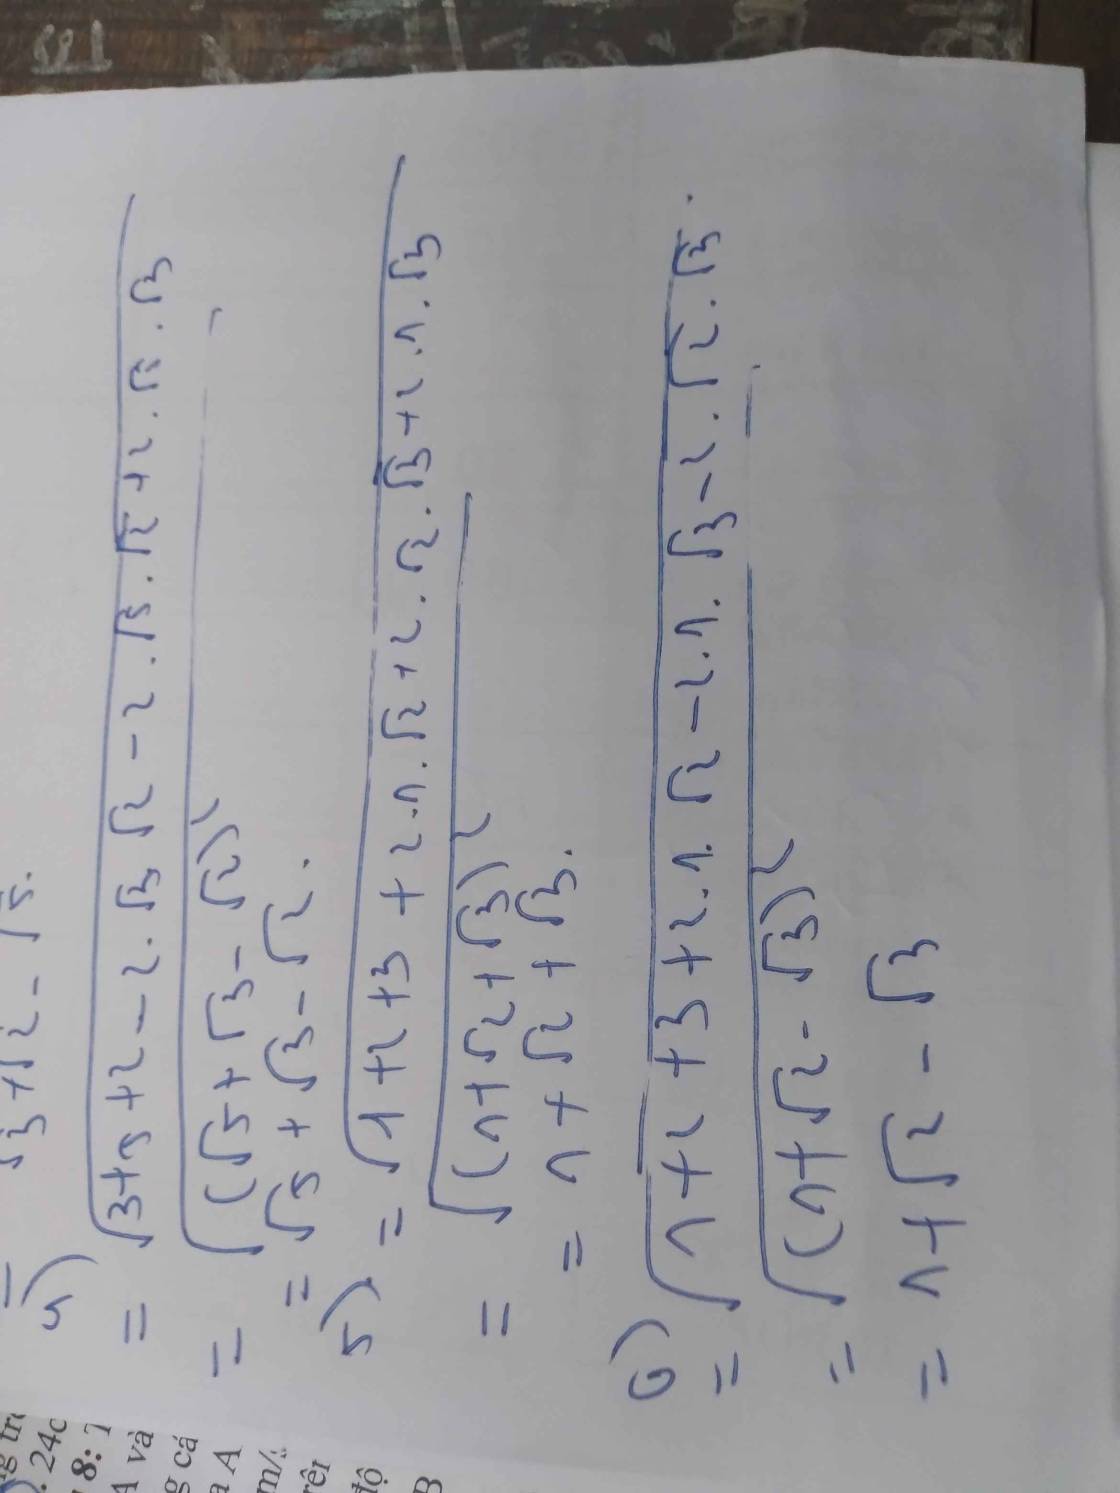 √3+√2-√5.
4)
= √3+5+2-2.√3 √2-2.√5.√2+2.√5.√3
= √(√5+√3-√2)²
= √5+√3-√2.
5)
= √1+2+3+2.1.√2+2.√2.√3+2.1.√3
= √(1+√2+√3)²
= 1+√2+√3.
6)
= √1+2+3+2.1.√2-2.1.√3-2.√2.√3.
= √(1+√2-√3)²
= 1+√2-√3
24c
8:
A và
g cá
a A
m/
rêi
độ
B